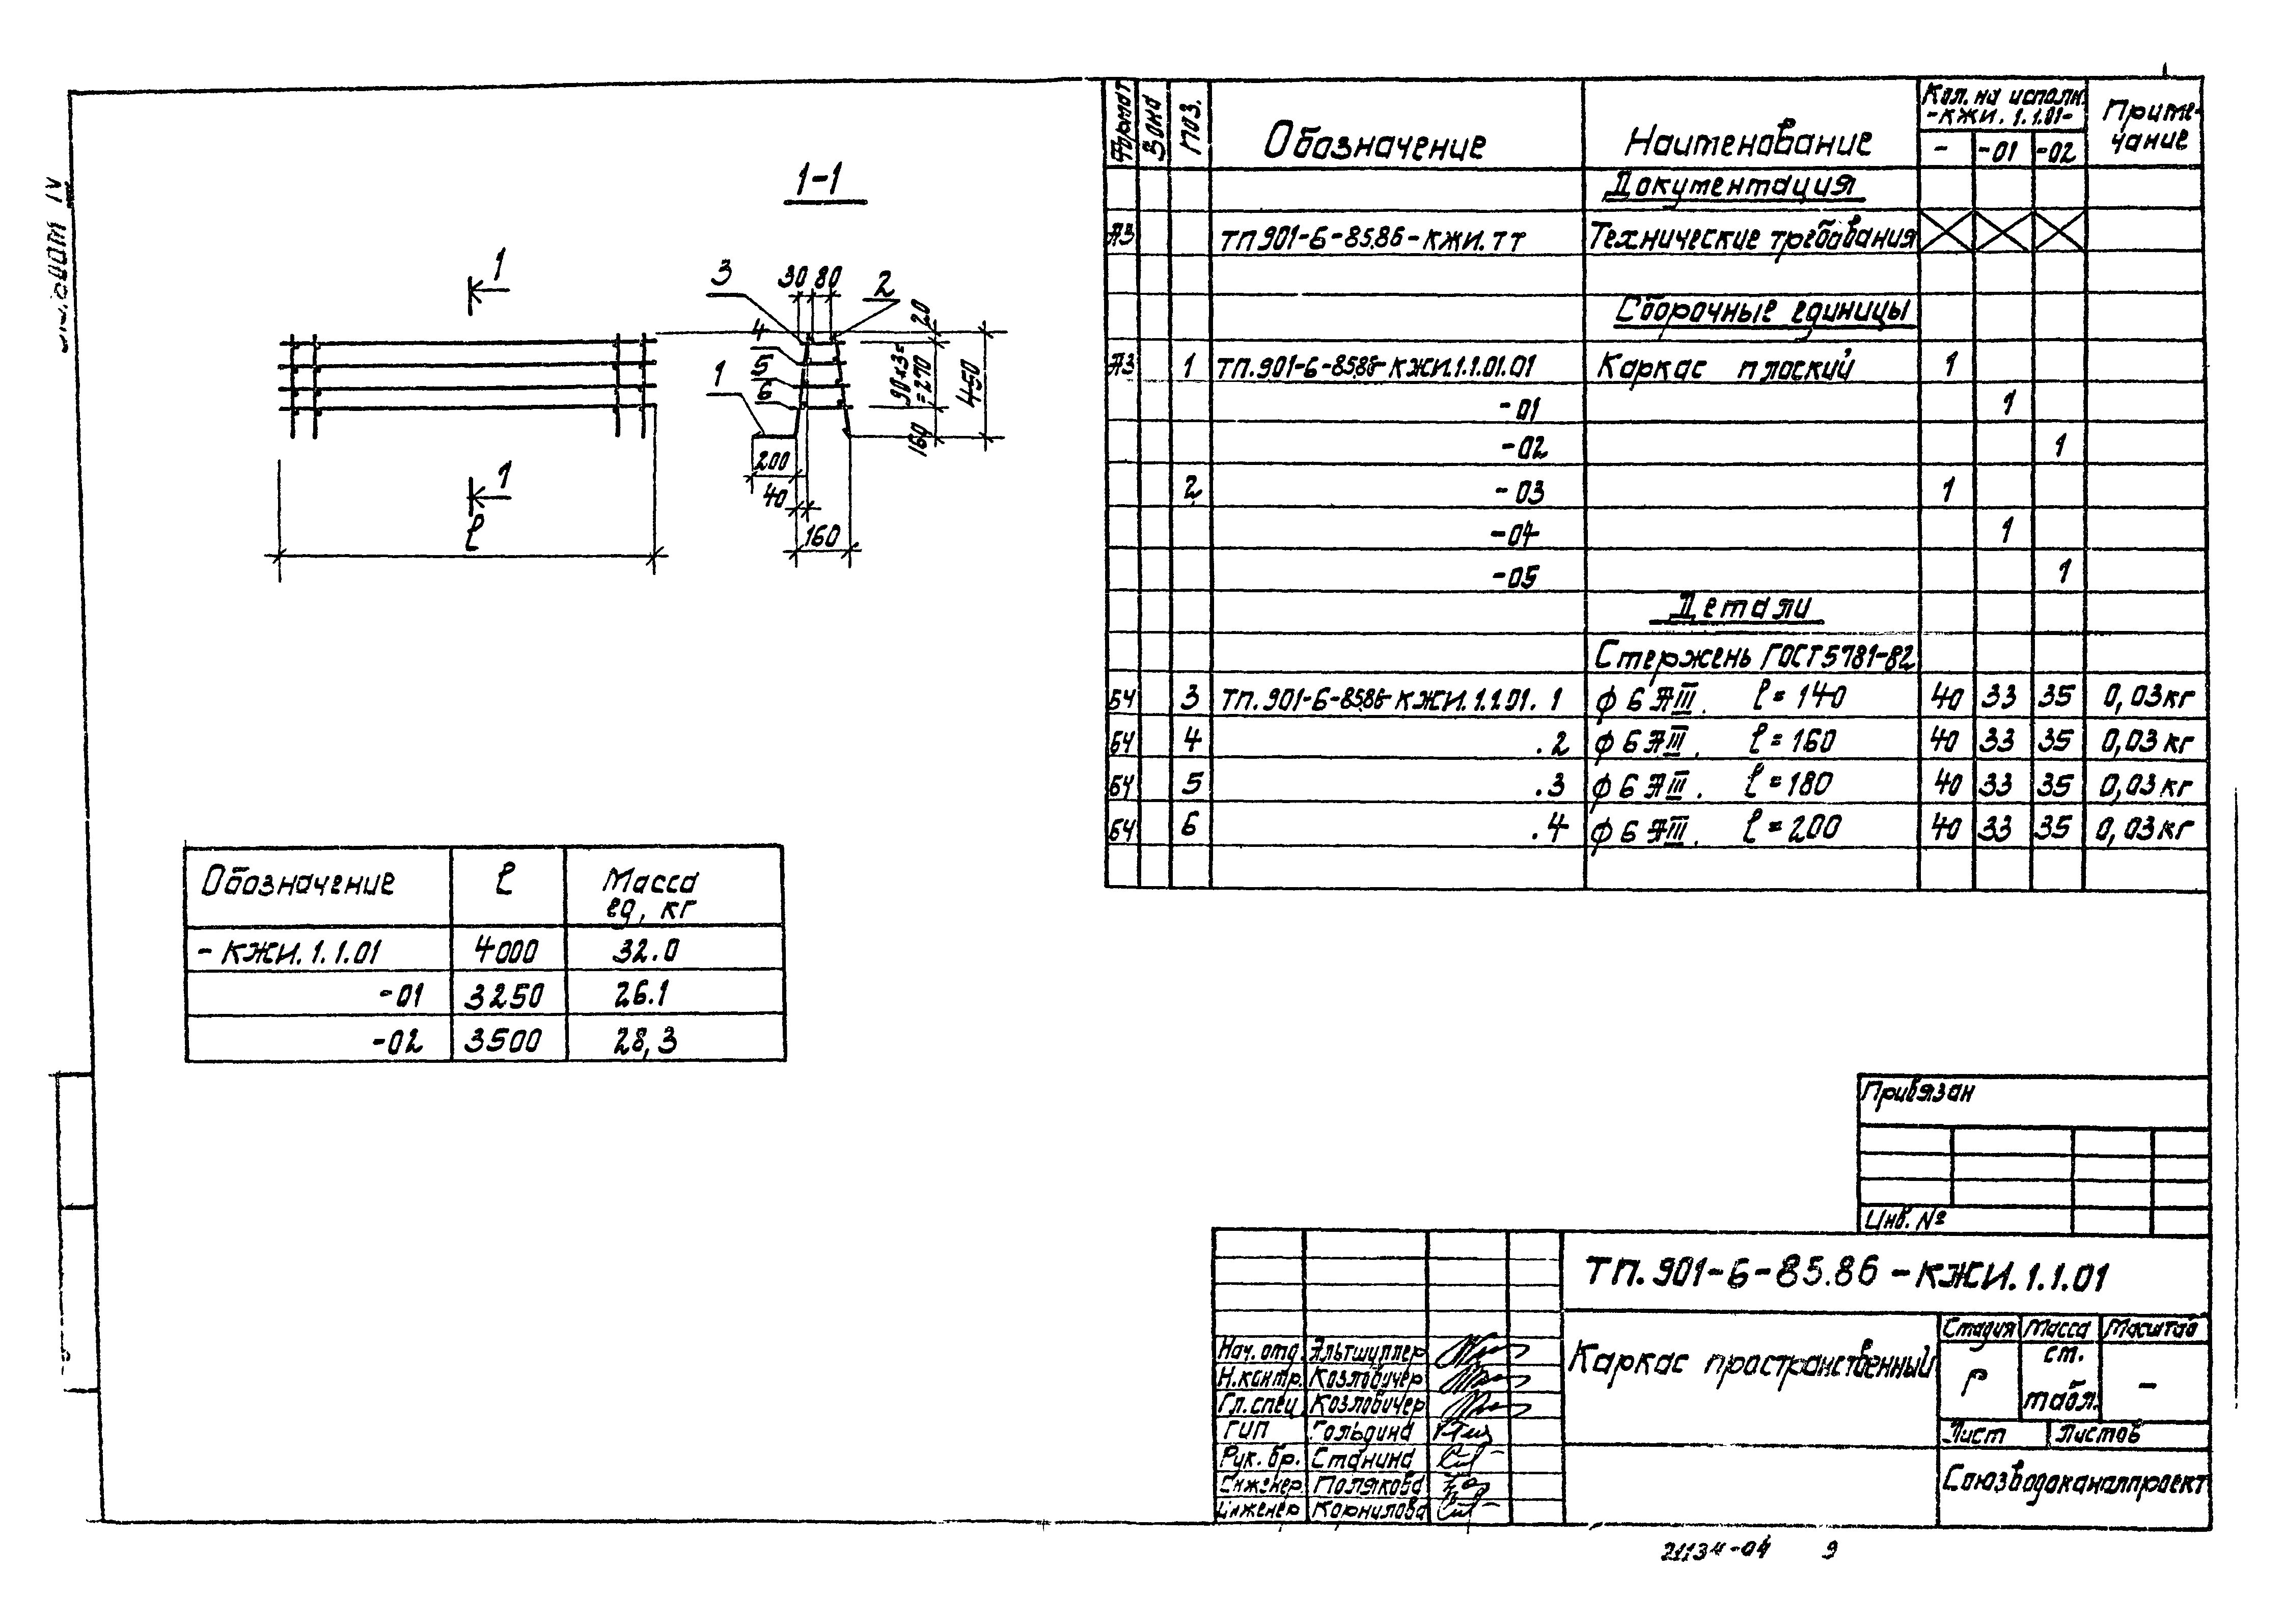 1-1
1
1
l
3
30 80
2
4
5
6
1
20
90×3=
=270
450
160
200
40
160
Формат
Зона
Поз.
Обозначение
Наименование
Кол. на исполн.
-КЖИ. 1.1.01-
- -01 -02
Приме-
чание
Документация
А3 ТП 901-6-85.86-КЖИ.ТТ Технические требования
Сборочные единицы
А3 1 ТП.901-6-85.86-КЖИ.1.1.01.01 Каркас плоский 1
-01 1
-02 1
2 -03 1
-04 1
-05 1
Детали
Стержень ГОСТ 5781-82
БЧ 3 ТП.901-6-85.86-КЖИ.1.1.01. 1 ф 6 АIII. l=140 40 33 35 0,03кг
БЧ 4 .2 ф 6 АIII. l=160 40 33 35 0,03кг
БЧ 5 .3 ф 6 АIII. l=180 40 33 35 0,03кг
БЧ 6 .4 ф 6 АIII. l=200 40 33 35 0,03кг
Обозначение l Масса
ед, кг
-КЖИ.1.1.01 4000 32.0
-01 3250 26.1
-02 3500 28,3
Привязан
Инв. №
ТП.901-6-85.86-КЖИ.1.1.01
Каркас пространственный
Стадия Масса Масштаб
Р ст. табл. -
Лист Листов
Союзводоканалпроект
Нач. отд. Альтшуллер
Н.контр. Козловичер
Гл.спец Козловичер
ГИП Гольдина
Рук. бр. Станина
Инженер Полякова
Инженер Корнилова
21134-04 9